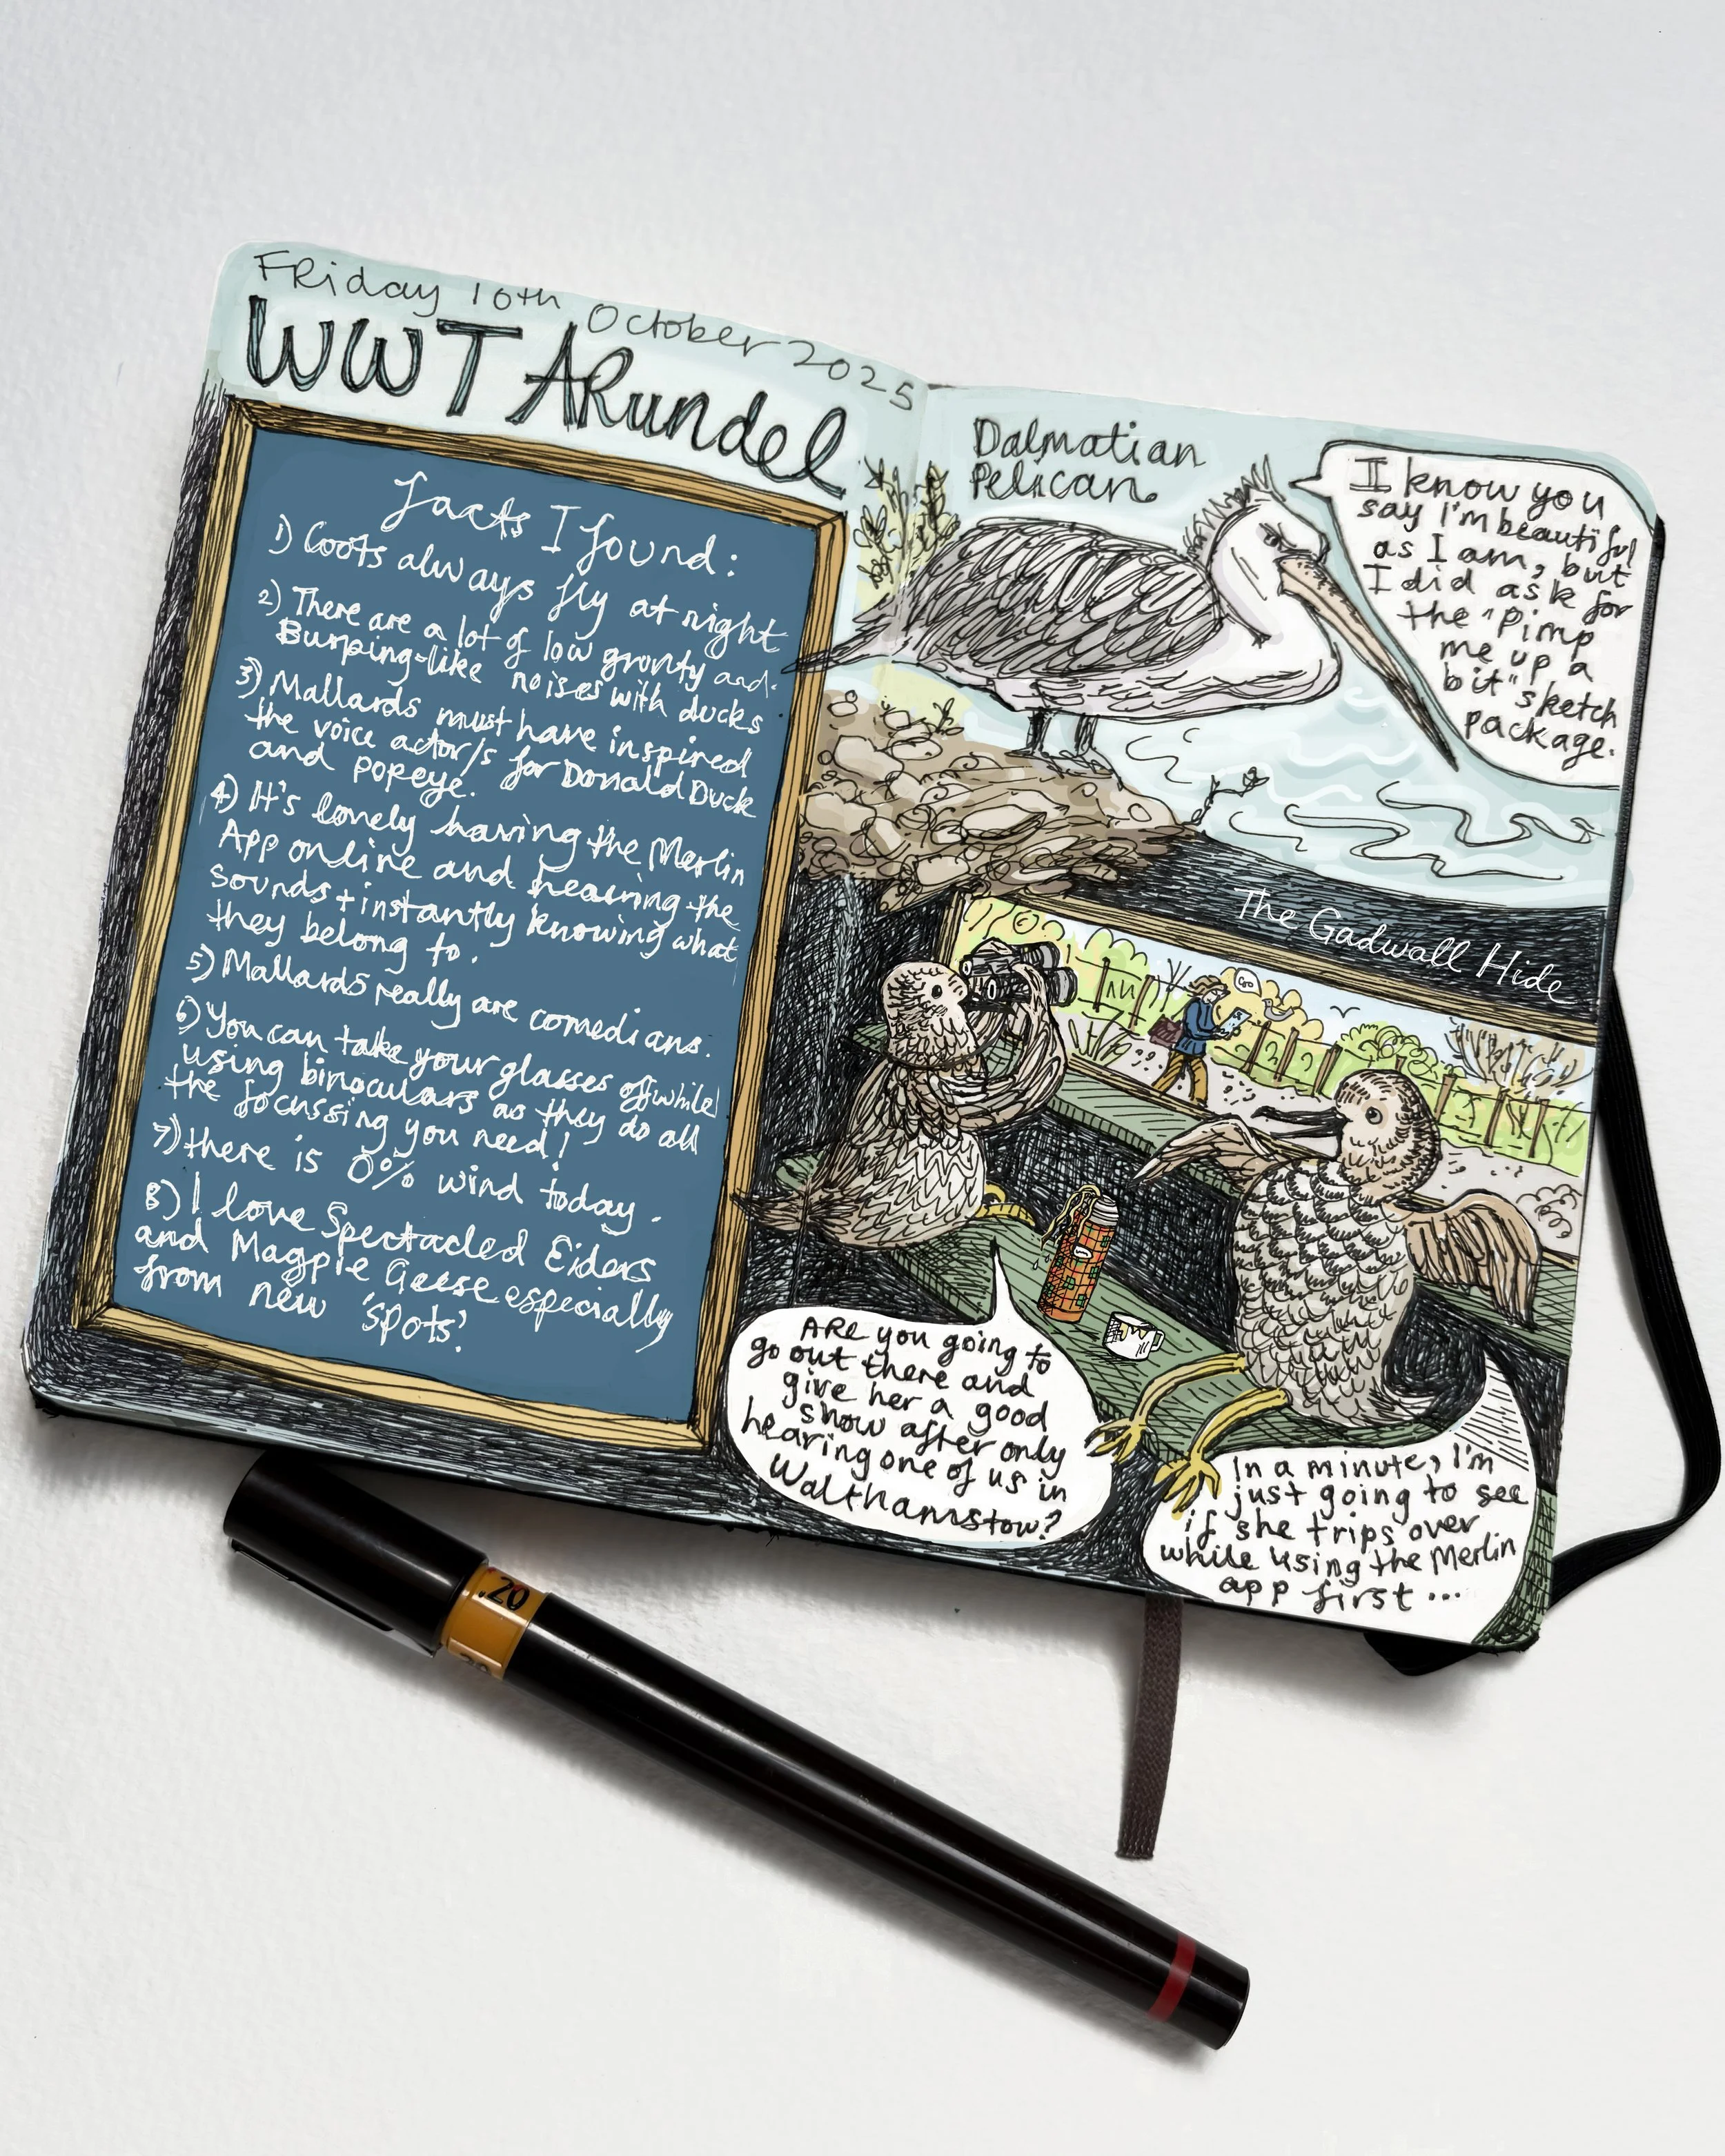 Friday 10th October 2025
WWT ARundel
facts I found:
1) Coots always fly at night
2) There are a lot of low gronty and
Burping-like noises with ducks
3) Mallards must have inspired
the voice actor/s for Donald Duck
and Popeye.
4) It's lonely having the Merlin
App online and hearing the
sounds + instantly knowing what
they belong to.
5) Mallards really are comedians.
6) You can take your glasses off while
using binoculars as they do all
the focussing you need!
7) there is 0% wind today.
8) I love Spectacled Eiders
and Magpie Geese especially
from new 'spots'.
Dalmatian
Pelican
I know you
say I'm beautiful
as I am, but
I did ask for
the "pimp
me up a
bit" sketch
package.
The Gadwall Hide
ARe you going to
go out there and
give her a good
show after only
hearing one of us in
Walthamstow?
In a minute, I'm
just going to see
if she trips over
while using the Merlin
app first...
.20